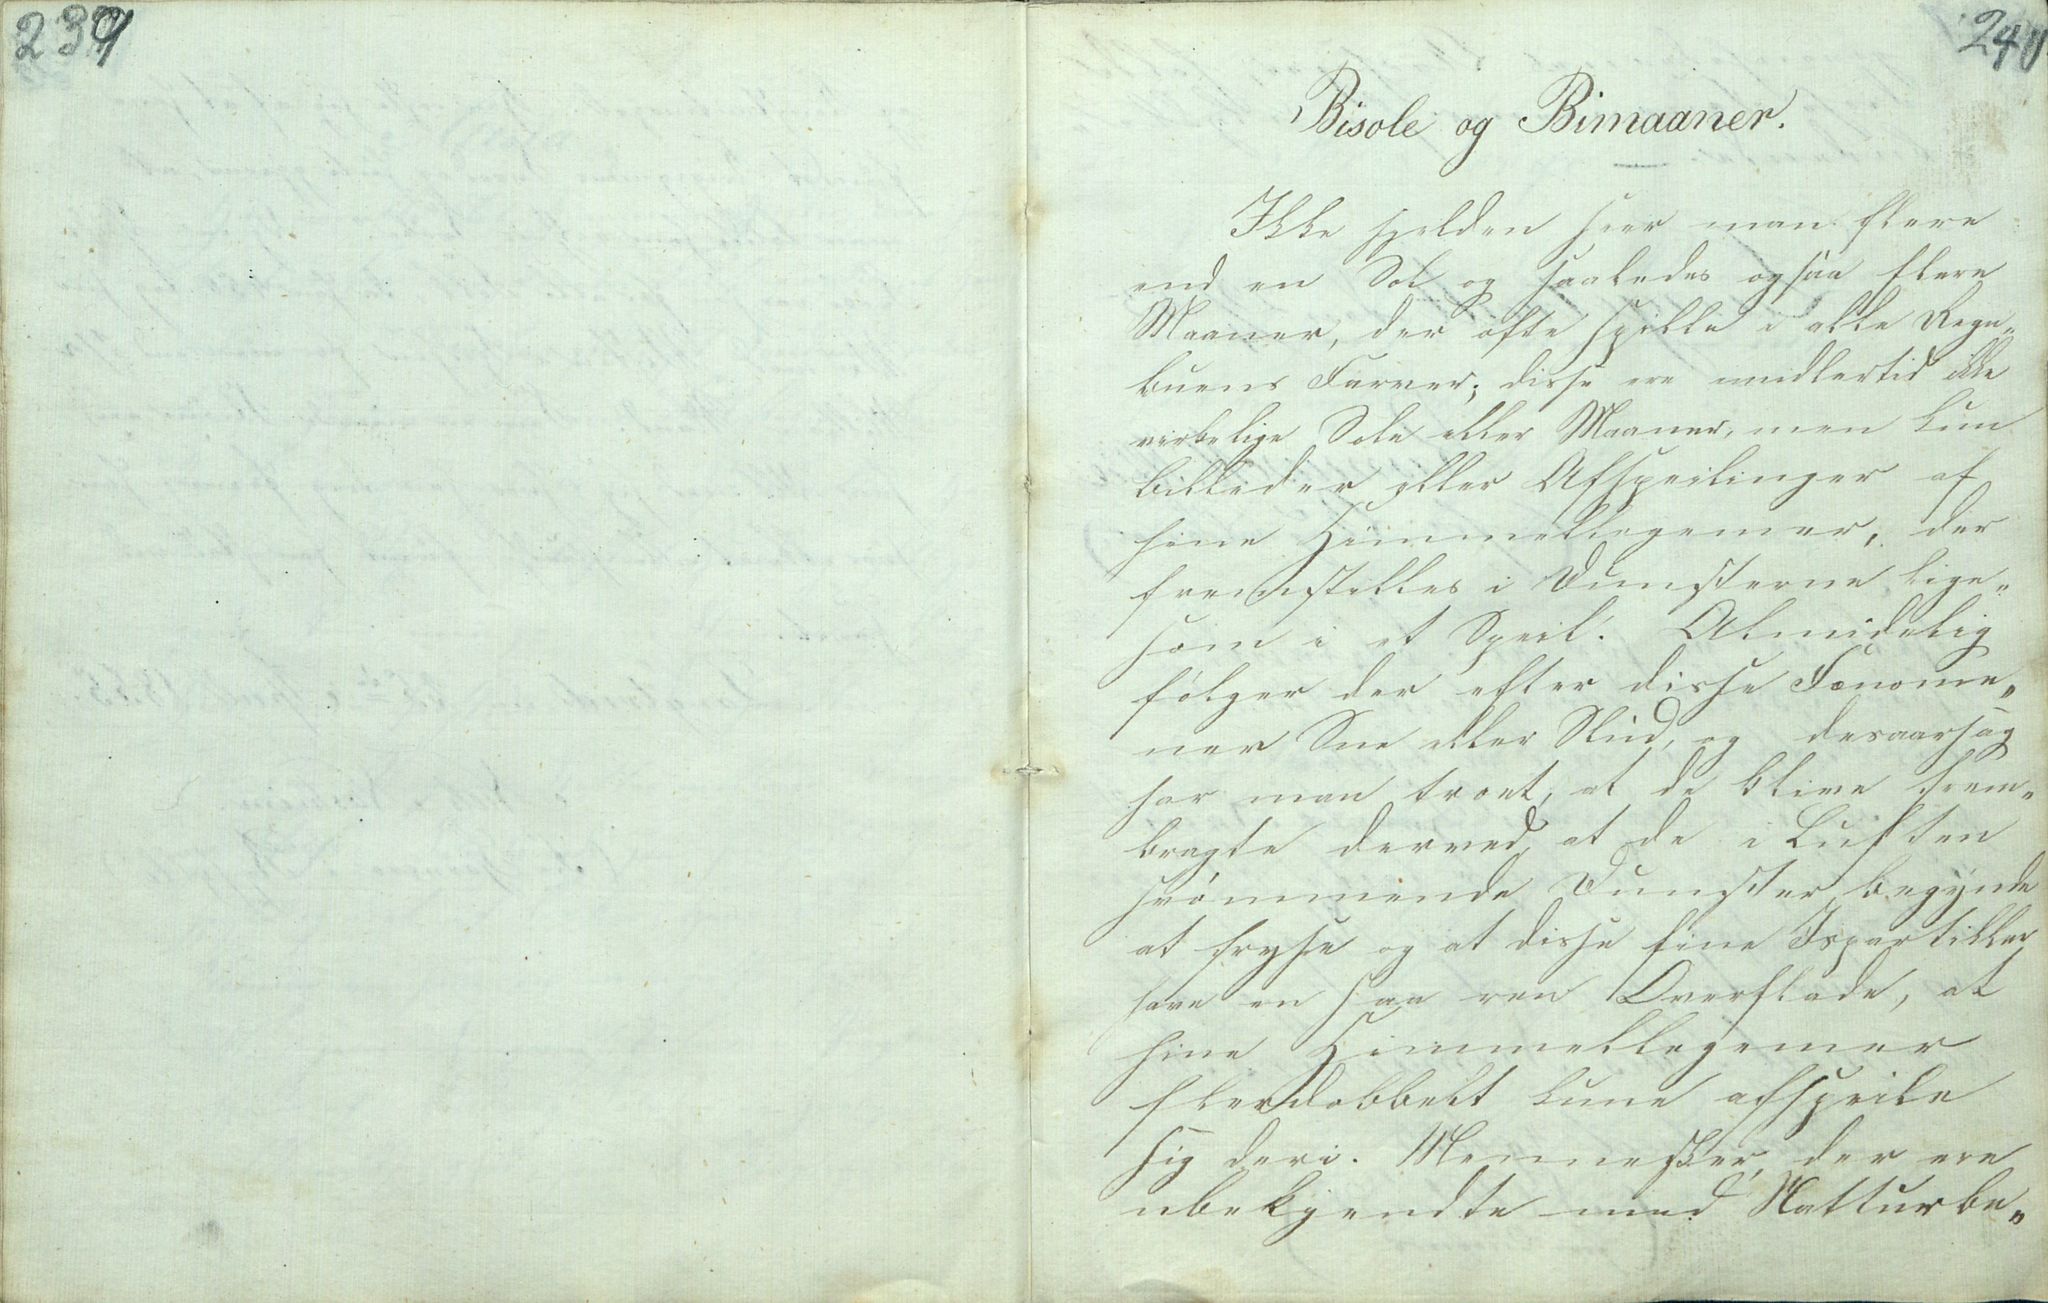 239
240
Bisole og Bimaaner.
Ikke sjelden seer man flere
end en Sol og saaledes ogsaa flere
Maaner, der ofte spille i alle Regn„
buens Farver; disse ere imidlertid ikke
virkelige Sole eller Maaner, men kun
billeder eller Afspeilinger af
hine Himmellegemer, der
fremstilles i Dunsterne lige„
som i et Speil. Almidelig
følger der efter disse Fænome„
ner Sne eller Slud, og desaarsag
har man troet, at de blive frem„
bragte derved, at de i Luften
svømmende Dunster begynde
at fryse og at disse fine Ispartikler
have en saa ren Overflade, at
hine Himmellegemer
flerdobbelt kune afspeile
sig deri. Mennesker, der ere
ubekjendte med Natturbe„